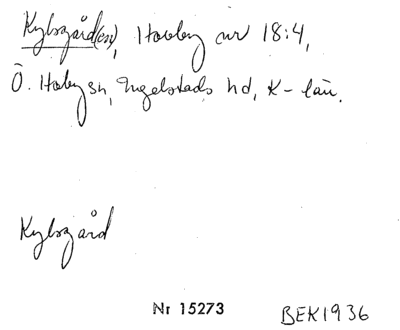 Kylsgård(en), Hoby nr 18:4,
Ö. Hoby sn, Ingelstads hd, K-län.
Kylsgård
Nr 15273
BEK1936